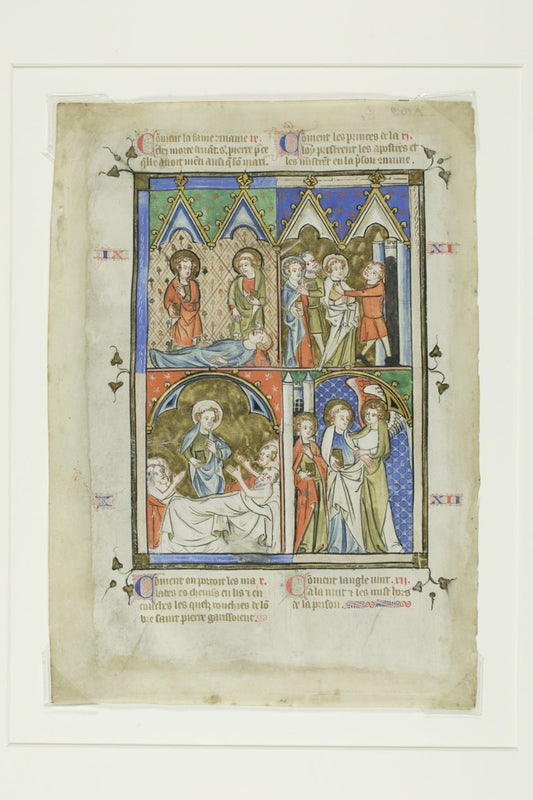 Coment la fame Ananie .ix.
chei morte devant .s. pierre por ce
qle avoit menti ausi com son mari.
Coment les princes de la .xi.
loy pristrent les apostres et
les mistrent en la prison
IX
XI
X
XII
Coment on portoit les ma .x.
lades es chemins en lis & en
couches les quels touches de lo
bre saint pierre garissoient.
Coment langle vint .xii.
a la nuit & les mist hors
de la prison.